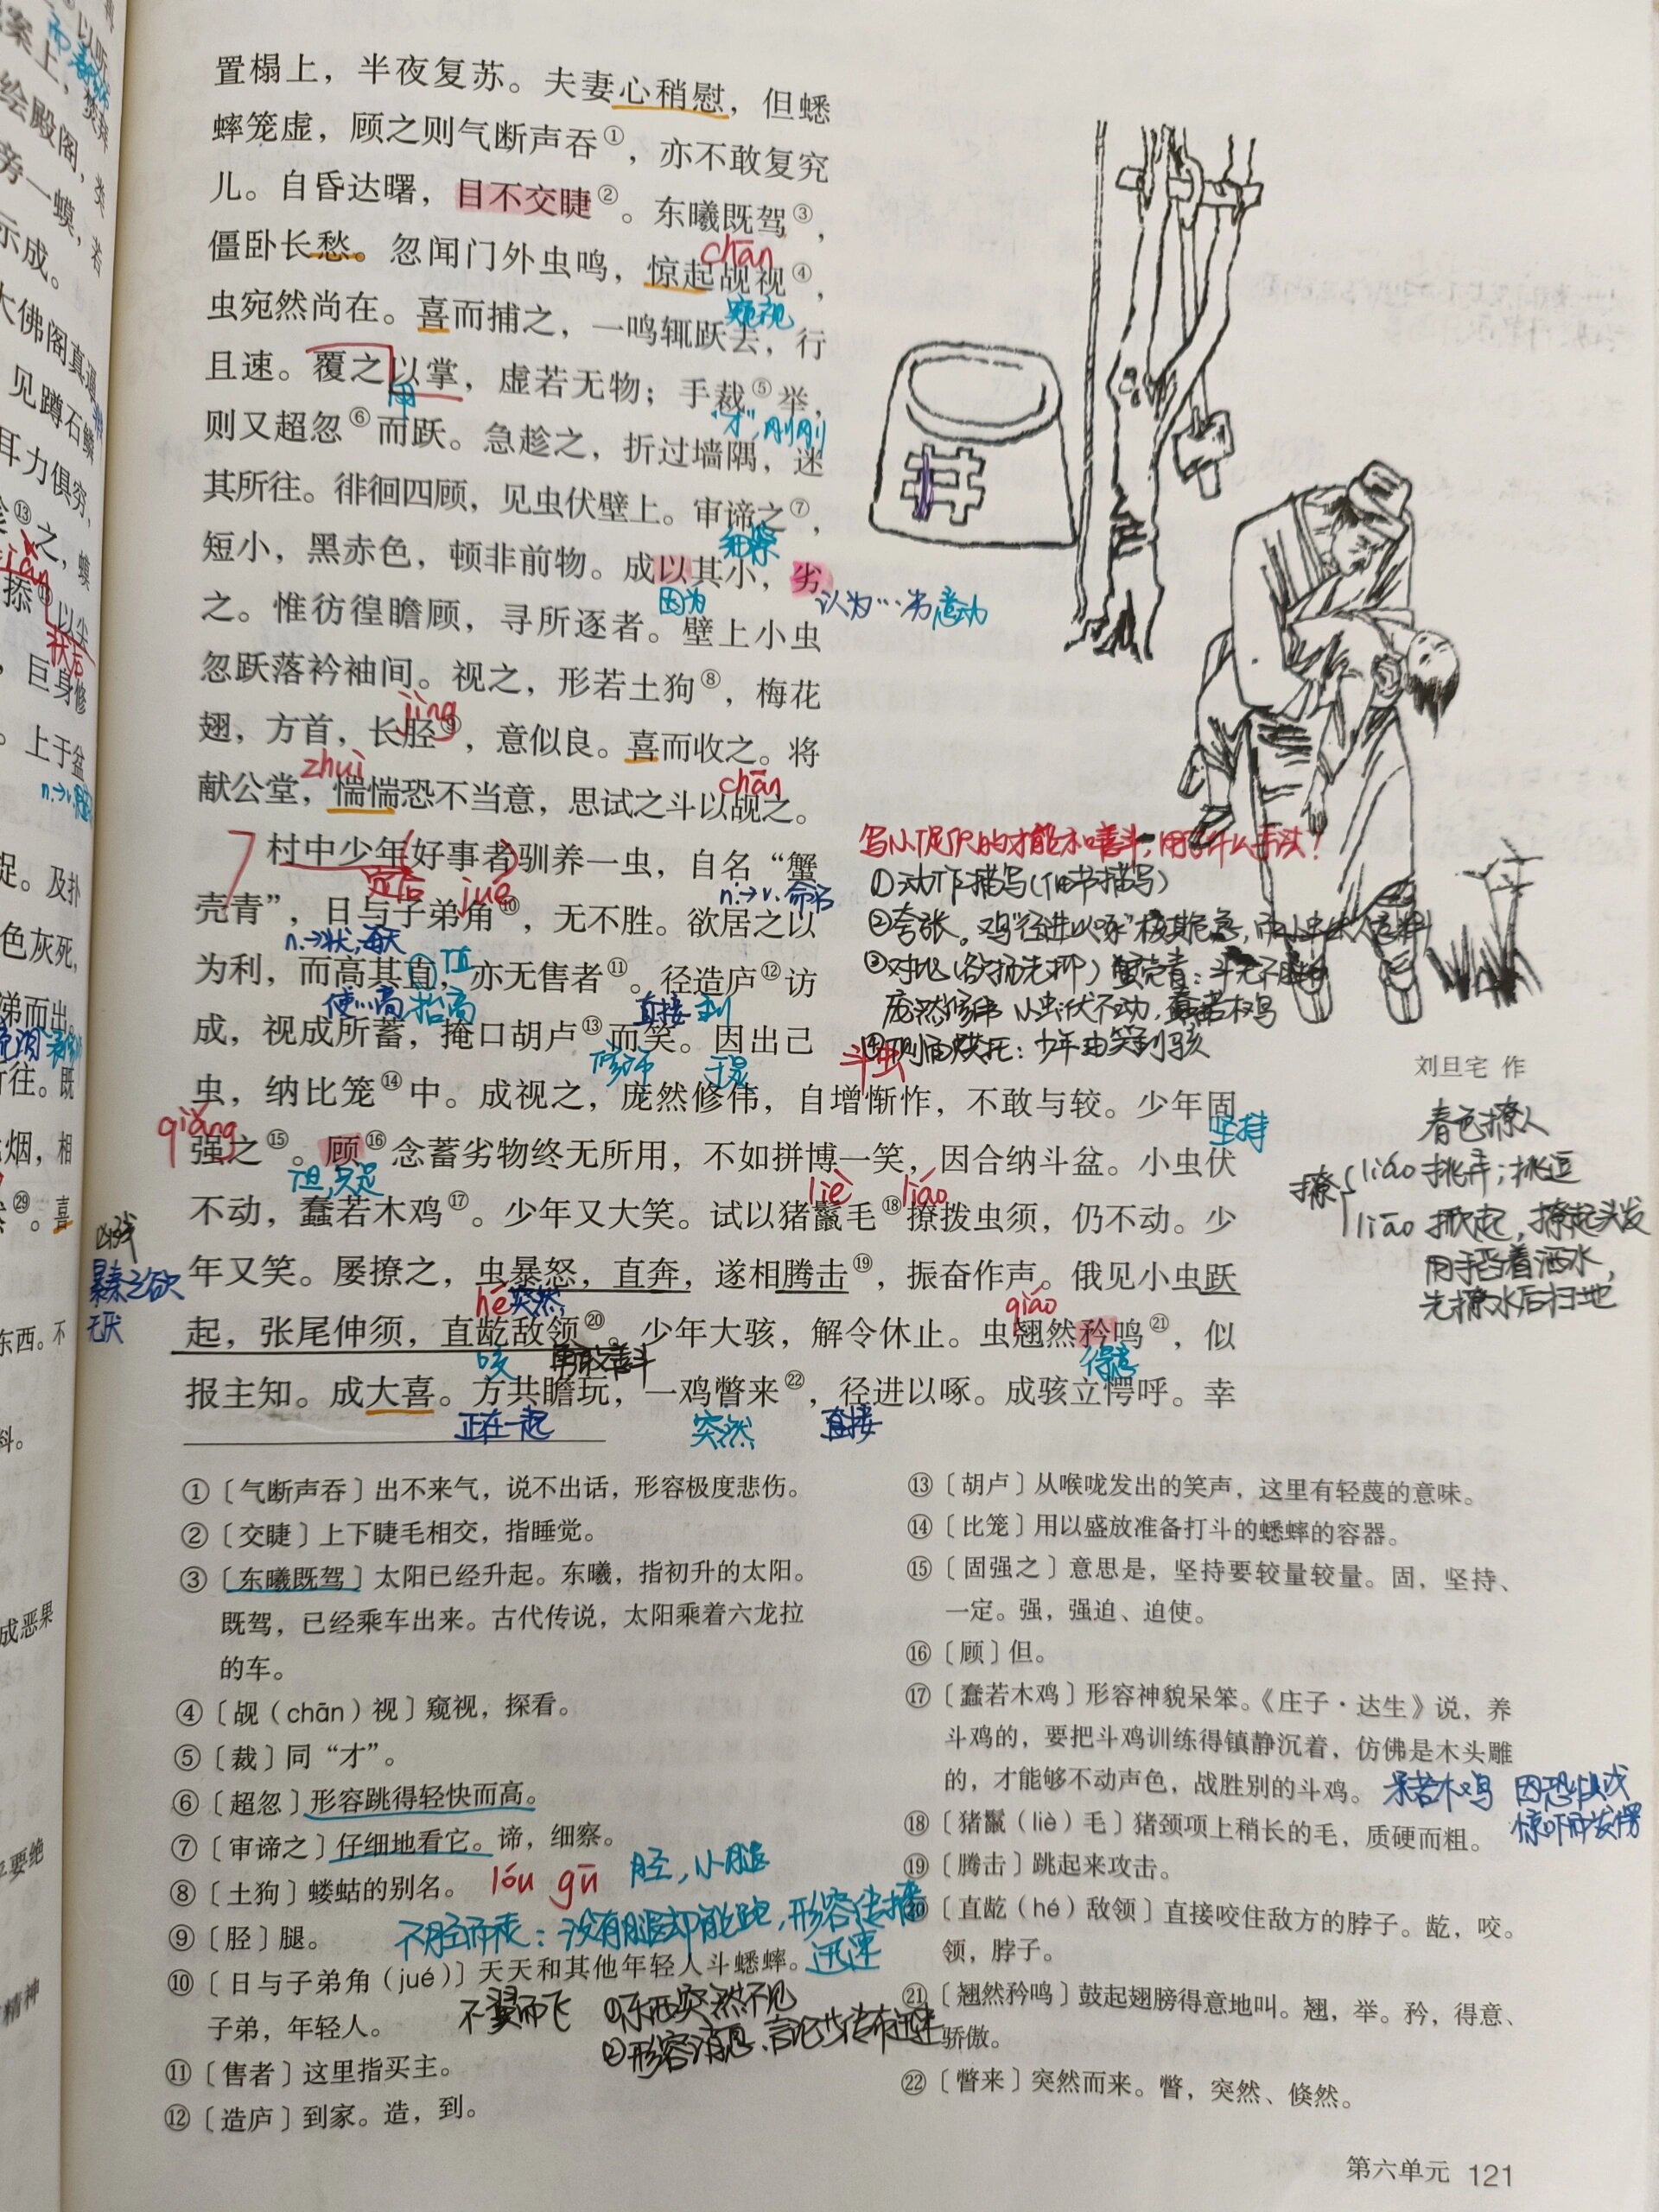 置榻上，半夜复苏。夫妻心稍慰，但蟋
蟀笼虚，顾之则气断声吞①，亦不敢复究
儿。自昏达曙，目不交睫②。东曦既驾③，
僵卧长愁。忽闻门外虫鸣，惊起觇视④，
chān
虫宛然尚在。喜而捕之，一鸣辄跃去，行
窥视
且速。覆之以掌，虚若无物；手裁⑤举，
用
"才"，刚刚
则又超忽⑥而跃。急趁之，折过墙隅，迷
其所往。徘徊四顾，见虫伏壁上。审谛之⑦，
细察
短小，黑赤色，顿非前物。成以其小，劣
因为
认为…劣 意动
之。惟彷徨瞻顾，寻所逐者。壁上小虫
忽跃落衿袖间。视之，形若土狗⑧，梅花
翅，方首，长胫⑨，意似良。喜而收之。将
jìng
献公堂，惴惴恐不当意，思试之斗以觇之。
zhuì
chān
村中少年好事者驯养一虫，自名“蟹
定后
jué
n.→v.命名
壳青”，日与子弟角⑩，无不胜。欲居之以
n.→状，每天
为利，而高其直，亦无售者⑪。径造庐⑫访
使…高 抬高
值
直接 到
成，视成所蓄，掩口胡卢⑬而笑。因出己
于是
虫，纳比笼⑭中。成视之，庞然修伟，自增惭怍，不敢与较。少年固
斗虫
坚持
强之⑮。顾⑯念蓄劣物终无所用，不如拼博一笑，因合纳斗盆。小虫伏
qiǎng
但，只是
不动，蠢若木鸡⑰。少年又大笑。试以猪鬣毛⑱撩拨虫须，仍不动。少
liè
liáo
年又笑。屡撩之，虫暴怒，直奔，遂相腾击⑲，振奋作声。俄见小虫跃
突然
起，张尾伸须，直龁敌领⑳。少年大骇，解令休止。虫翘然矜鸣㉑，似
hé
咬
勇敢善斗
qiáo
得意
报主知。成大喜。方共瞻玩，一鸡瞥来㉒，径进以啄。成骇立愕呼。幸
正在一起
突然
直接
暴秦之欲
无厌
①动作描写(细节描写)
③对比(欲扬先抑) 蟹壳青：斗无不胜
庞然修伟 小虫：伏不动，蠢若木鸡
④侧面烘托：少年由笑到骇
刘旦宅 作
春色撩人
撩 liáo 挑弄；挑逗
liāo 掀起，撩起头发
用手舀着洒水，
先撩水后扫地
①〔气断声吞〕出不来气，说不出话，形容极度悲伤。
②〔交睫〕上下睫毛相交，指睡觉。
③〔东曦既驾〕太阳已经升起。东曦，指初升的太阳。
既驾，已经乘车出来。古代传说，太阳乘着六龙拉
的车。
④〔觇（chān）视〕窥视，探看。
⑤〔裁〕同“才”。
⑥〔超忽〕形容跳得轻快而高。
⑦〔审谛之〕仔细地看它。谛，细察。
⑧〔土狗〕蝼蛄的别名。
lóu gū
胫，小腿
⑨〔胫〕腿。
不胫而走：没有腿却能跑，形容传播
迅速
⑩〔日与子弟角（jué）〕天天和其他年轻人斗蟋蟀。
子弟，年轻人。
不翼而飞 ①东西突然不见
②形容消息、言论等传布迅速
⑪〔售者〕这里指买主。
⑫〔造庐〕到家。造，到。
⑬〔胡卢〕从喉咙发出的笑声，这里有轻蔑的意味。
⑭〔比笼〕用以盛放准备打斗的蟋蟀的容器。
⑮〔固强之〕意思是，坚持要较量较量。固，坚持、
一定。强，强迫、迫使。
⑯〔顾〕但。
⑰〔蠢若木鸡〕形容神貌呆笨。《庄子·达生》说，养
斗鸡的，要把斗鸡训练得镇静沉着，仿佛是木头雕
的，才能够不动声色，战胜别的斗鸡。
呆若木鸡 因恐惧或
惊吓而发愣
⑱〔猪鬣（liè）毛〕猪颈项上稍长的毛，质硬而粗。
⑲〔腾击〕跳起来攻击。
⑳〔直龁（hé）敌领〕直接咬住敌方的脖子。龁，咬。
领，脖子。
㉑〔翘然矜鸣〕鼓起翅膀得意地叫。翘，举。矜，得意、
骄傲。
㉒〔瞥来〕突然而来。瞥，突然、倏然。
第六单元 121